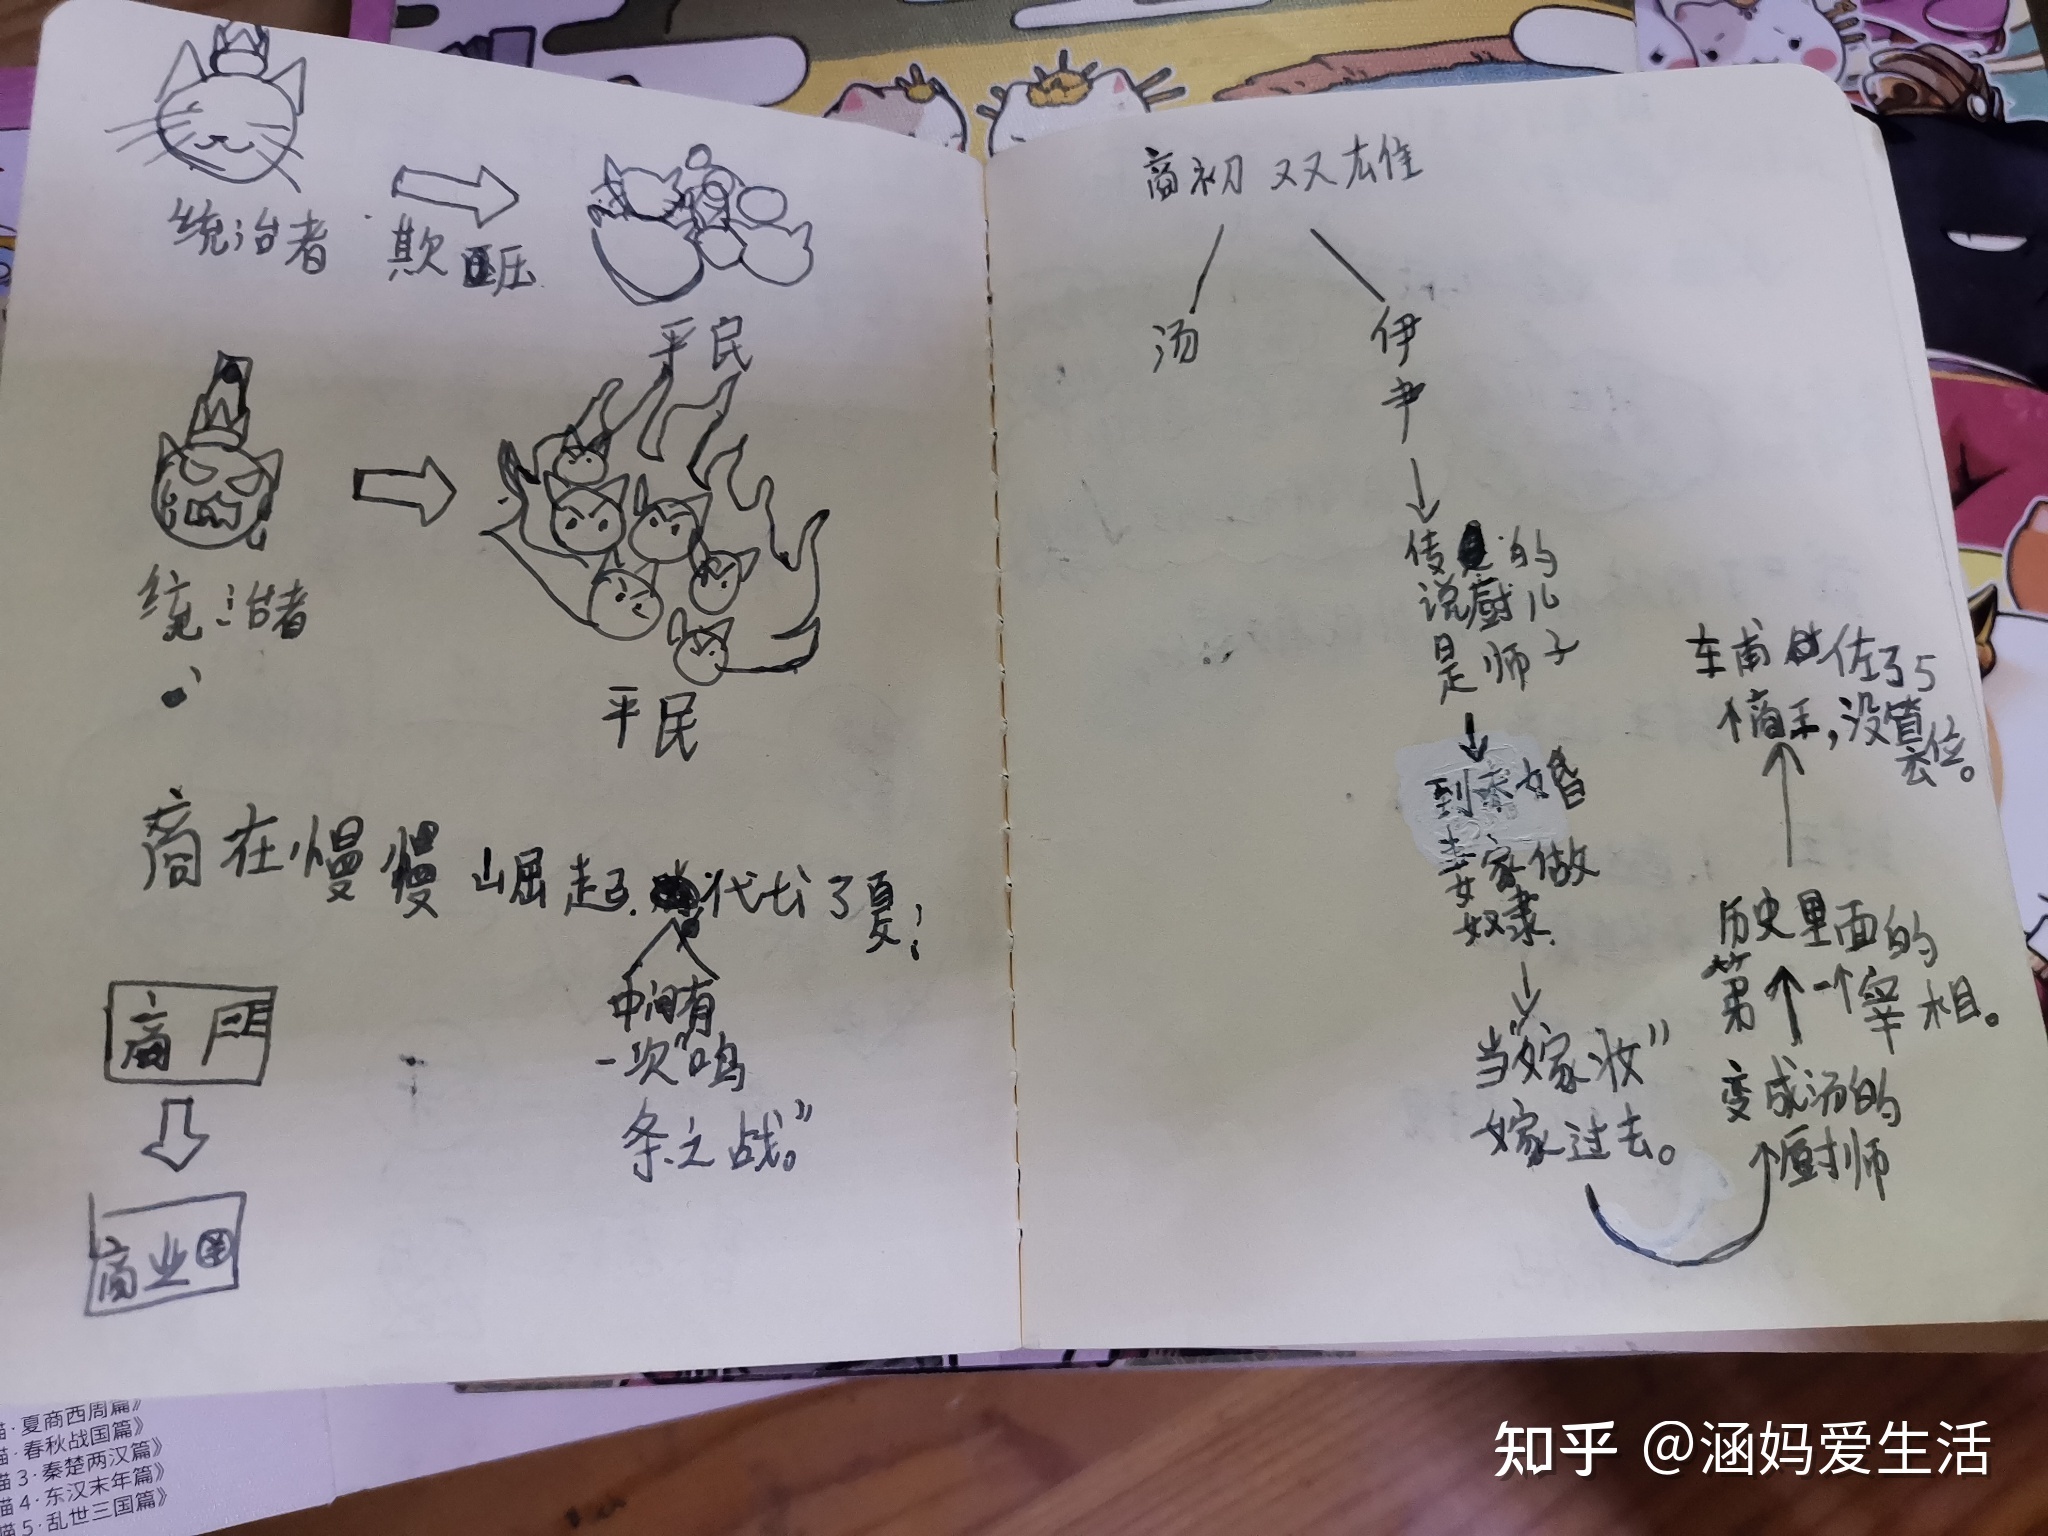 统治者
欺压
平民
统治者
平民
商在慢慢崛起.代替了夏!
中间有
一次"鸣
条之战"。
商
商业
商初 双雄
汤
伊
尹
传 的
说厨儿
是师子
到未婚
妻家做
女
奴隶.
当"嫁妆"
嫁过去。
变成汤的
个厨师
历史里面的
第一个宰相。
车甫佐了5
个商王,没篡
去位。
猫·夏商西周篇》
猫·春秋战国篇》
猫3·秦楚两汉篇》
猫4·东汉末年篇》
猫5·乱世三国篇》
知乎 @涵妈爱生活